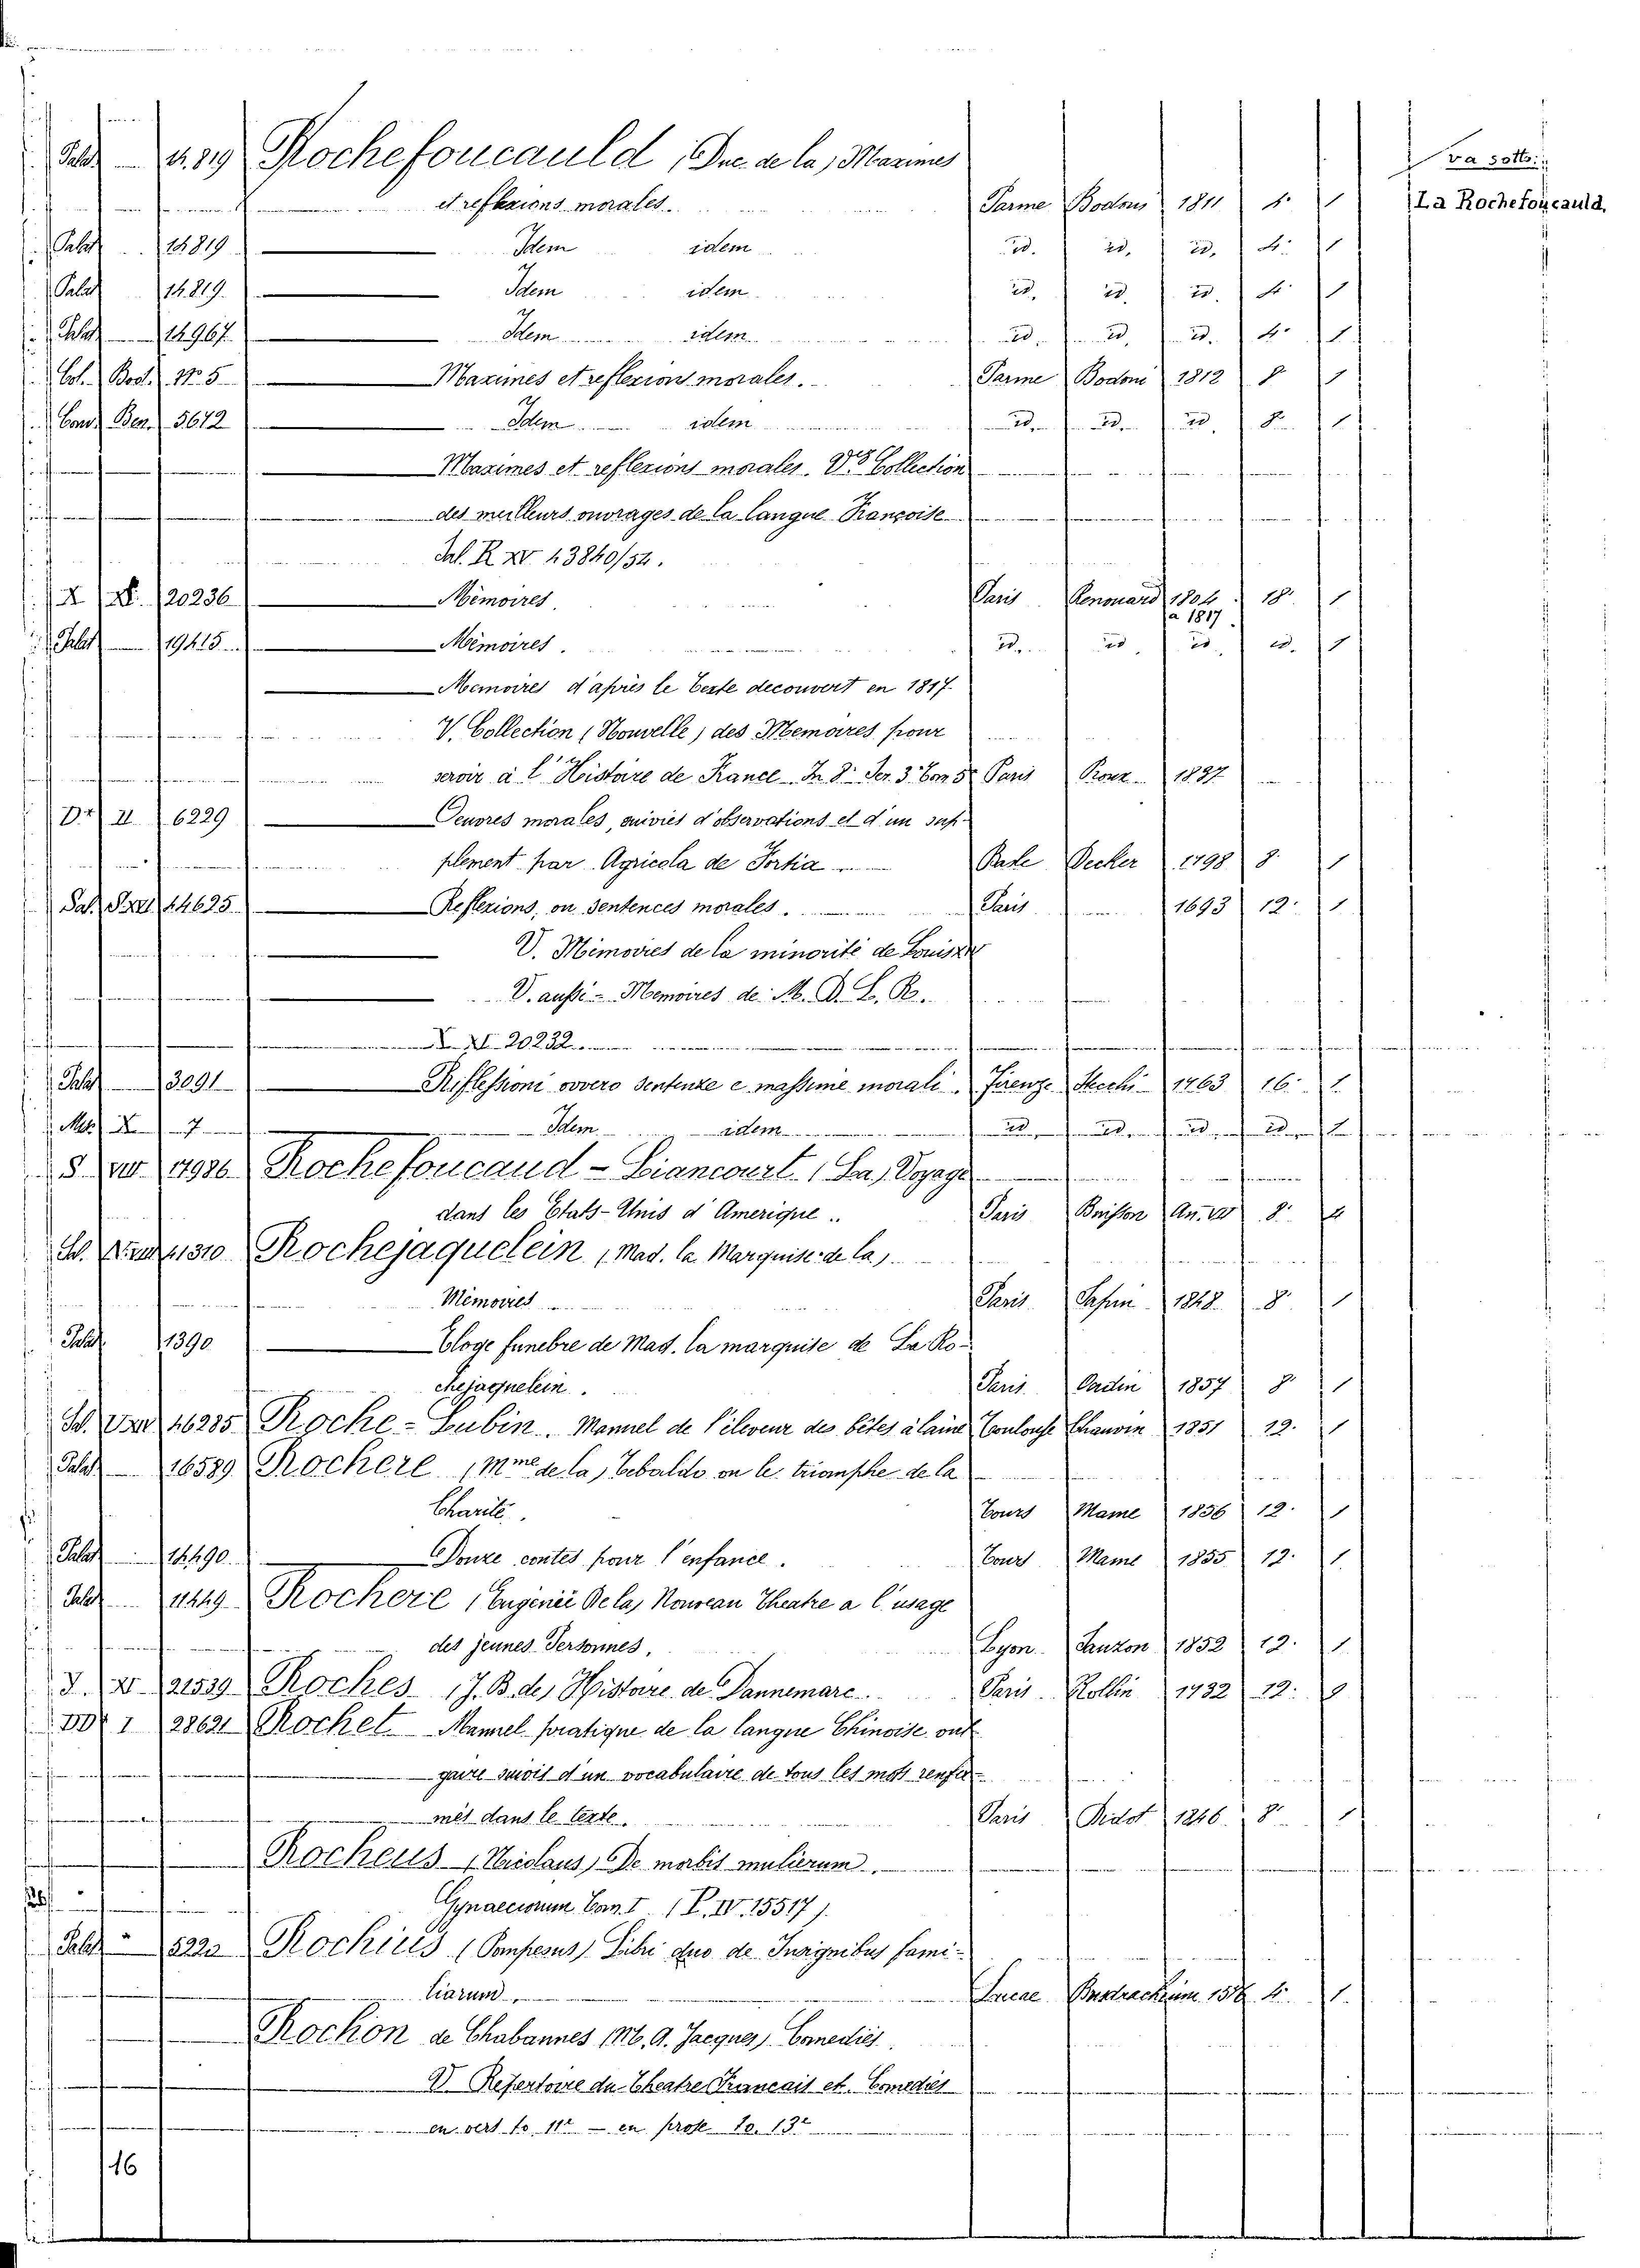 Palat 14.819 Rochefoucauld, Duc de la, Maximes
va sotto:
et reflexions morales. Parme Bodoni 1811 4. 1
La Rochefoucauld,
Palat 14819 Idem idem id. id. id. 4. 1
Palat 14.819. Idem idem id. id. id. 4. 1
Palat 14.967. Idem idem id. id. id. 4. 1
Col. Bod. N.° 5 Maximes et reflexions morales. Parme Bodoni 1812 8 1
Cons. Ben. 5672 Idem idem id. id. id. 8. 1
Maximes et reflexions morales. Vs Collection
des meilleurs ouvrages de la langue Françoise
Sal. R. XV. 13840/54.
X XI. 20236 Mémoires. Paris Renouard 1804 18. 1
a 1817.
Palat 19415 Mémoires. id. id. id. id. 1
Memoires d'après le texte decouvert en 1817.
V. Collection (Nouvelle) des Memoires pour
servir à l'Histoire de France In 8.° Ser. 3.ª Tom 5.° Paris 1837
II 6229 Oeuvres morales, suivies d'observations et d'un sup-
plement par Agricola de Fortia Basle Decker 1798 8. 1
Sal. 14695 Reflexions, ou sentences morales. Paris 1693 12. 1
V. Mémoires de la minorité de Louis XIV
V. aussi - Memoires de M. D. L. R.
X. XI. 20232.
Palat 13091 Riflessioni ovvero sentenze e massime morali. Firenze Stecchi 1763 16. 1
X 7 Idem idem id. id. id. id. 1
S. VIII 4986 Rochefoucaud-Liancourt (La) Voyage
dans les Etats-Unis d'Amerique. Paris Buisson An. VII 8. 4
1310 Rochejaquelein (Mad. la Marquise de la)
Mémoires Paris 1848. 8. 1
Palat 11390 Eloge funebre de Mad. la marquise de La Ro-
chejaquelein. Paris 1857 8 1
16285 Roche-Lubin. Manuel de l'éleveur des bêtes à laine Toulouse Chauvin 1851 12. 1
Palat 16589 Rochere (Mme de la) Tebaldo ou le triomphe de la
Charité. Tours Mame 1856 12. 1
Palat 14490. Douze contes pour l'enfance. Tours Mame 1855 12. 1
Palat 11449 Rochere (Eugenie De la) Nouveau Theatre a l'usage
des jeunes Personnes. Lyon 1852 12. 1
J. XI 21539 Roches (J. B. des) Histoire de Dannemarc. Paris Rollin 1732 12. 9
DD I 28621 Rochet Manuel pratique de la langue Chinoise vul-
gaire suivis d'un vocabulaire de tous les mots renfer-
més dans le texte. Paris Didot 1846. 8. 1
Rocheus (Nicolaus) De morbis mulierum.
Gynaeciorum Tom. I. (P. IV. 15517).
Palat 5223 Rochius (Pompejus) Libri duo de Insignibus fami-
liarum. Lucae 4. 1.
Rochon de Chabannes (M. A. Jacques) Comedies.
V. Repertoire du Theatre Francais et. Comedies
en vers to. 11º - en prose to. 13º
16